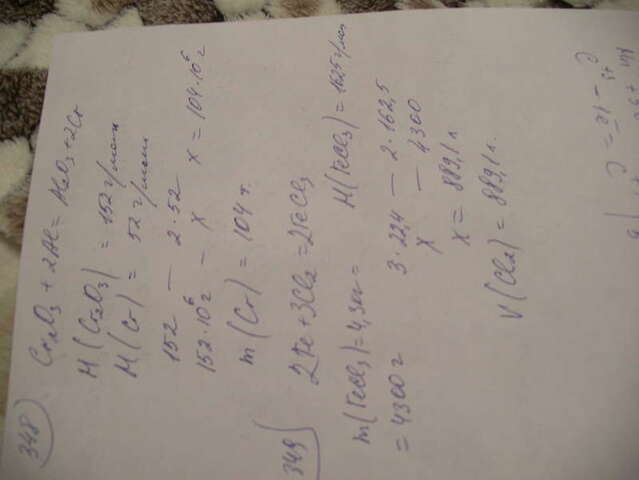 348)
Cr₂O₃ + 2Al = Al₂O₃ + 2Cr
M(Cr₂O₃) = 152 г/моль
M(Cr) = 52 г/моль
152 — 2·52
152·10⁶ г — x x = 104·10⁶ г
m(Cr) = 104 т.
349)
2Fe + 3Cl₂ = 2FeCl₃
m(FeCl₃) = 4,3 кг = M(FeCl₃) = 162,5 г/моль
= 4300 г
3·22,4 — 2·162,5
x — 4300
x = 889,1 л
V(Cl₂) = 889,1 л.